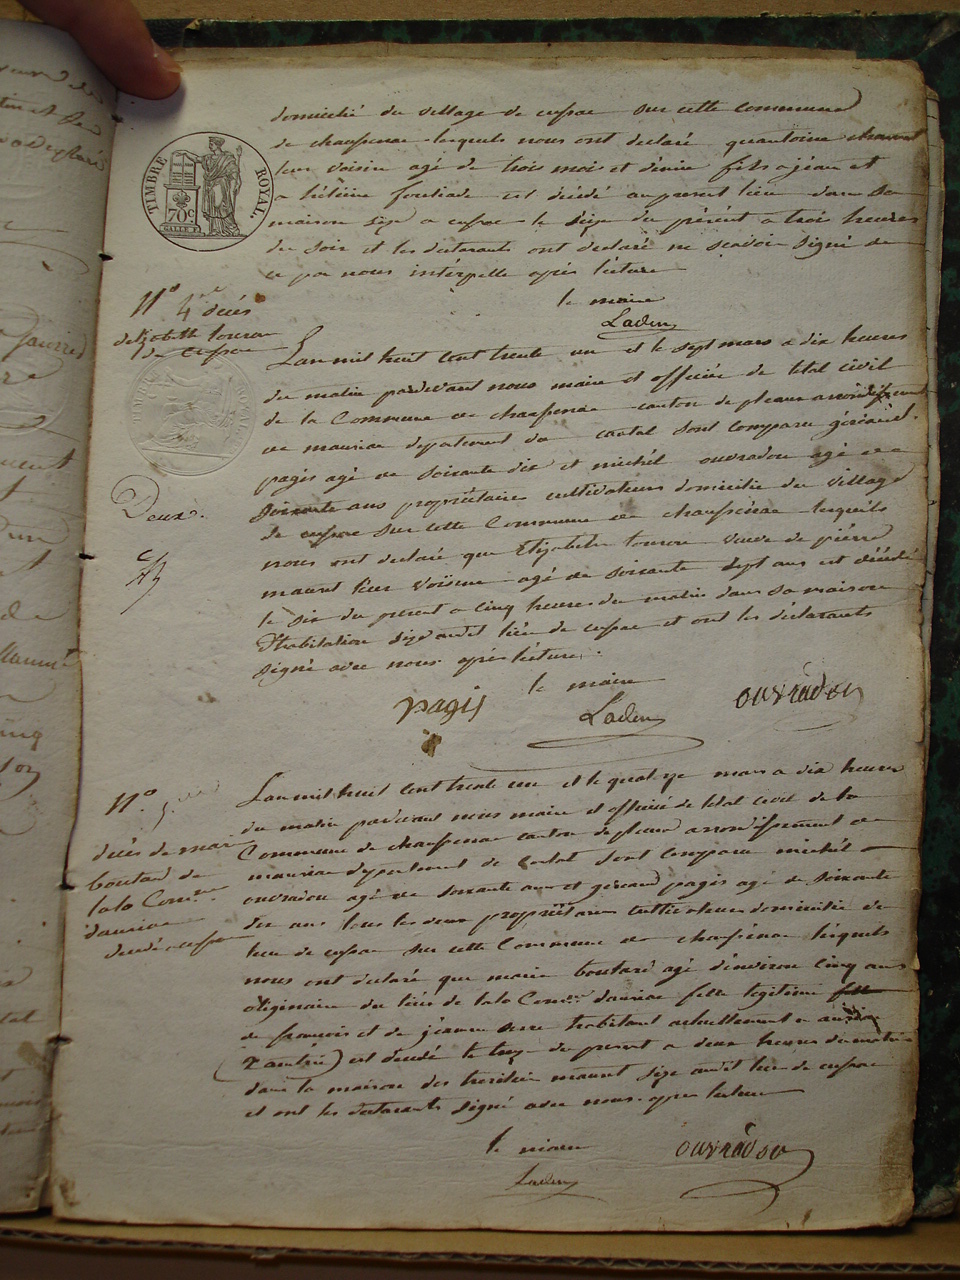 domicilié du village de cussac sur cette commune
de chaussenac lesquels nous ont déclaré quantoine
leur voisin agé de trois moi et démie fils a jean et
a héléine est décédé au present lieu dans sa
maison size a cussac le size du présent a troi heures
du soir et les déclarants ont déclaré ne scavoir signé de
ce par nous intérpelle aprés lécture
le maire
TIMBRE ROYAL.
70c
N° 4me décés
Lan mil huit cent trente un et le sept mars a dix heures
du matin pardevant nous maire et officiée de létat civil
de la Commune de chaussenac canton de pleaux
de mauriac departement du cantal sont comparu
pagis agé de soixante dix et michél ouvradou agé de
soixante ans propriétaire cultivateurs domicilie du village
de cussac sur cette Commune de chaussenac lesquels
nous ont declaré que Elizabeth veuve de piérre
maurel leur voisine agé de soixante sept ans est décédé
le six du present a cinq heures du matin dans sa maison
d'habitation size audit lieu de cussac et ont les déclarants
signé avec nous apés lécture.
Deux.
le maire
pagis
ouvradou
N° 5me
Lan mil huit cent trente un et le quatorze mars a dix heures
du matin pardevant nous maire et officié de létat civil de la
Commune de chaussenac canton de pleaux arrondissement de
mauriac département de cantal sont comparu michél
ouvradou agé de soixante ans et gerard pagis agé de soixante
dix ans tous les deux propriétaires cultivateurs domicilie du
lieu de cussac sur cette Commune de chaussénac lésquels
nous ont déclaré que marie boutaré agé d'énviron cinq ans
originaire du liéu de lalo Comne dauriac fille legitime
de francois et de jéanne serre habitant actuellement a
est decedé le treze du present a deux heures du matin
dans la maison des heritiers maurel size audit lieu de cussac
et ont les déclarants signé avec nous apres lecture
décés de marie
boutard de
lalo Comne
dauriac
decédé a cussac
le maire
ouvradou